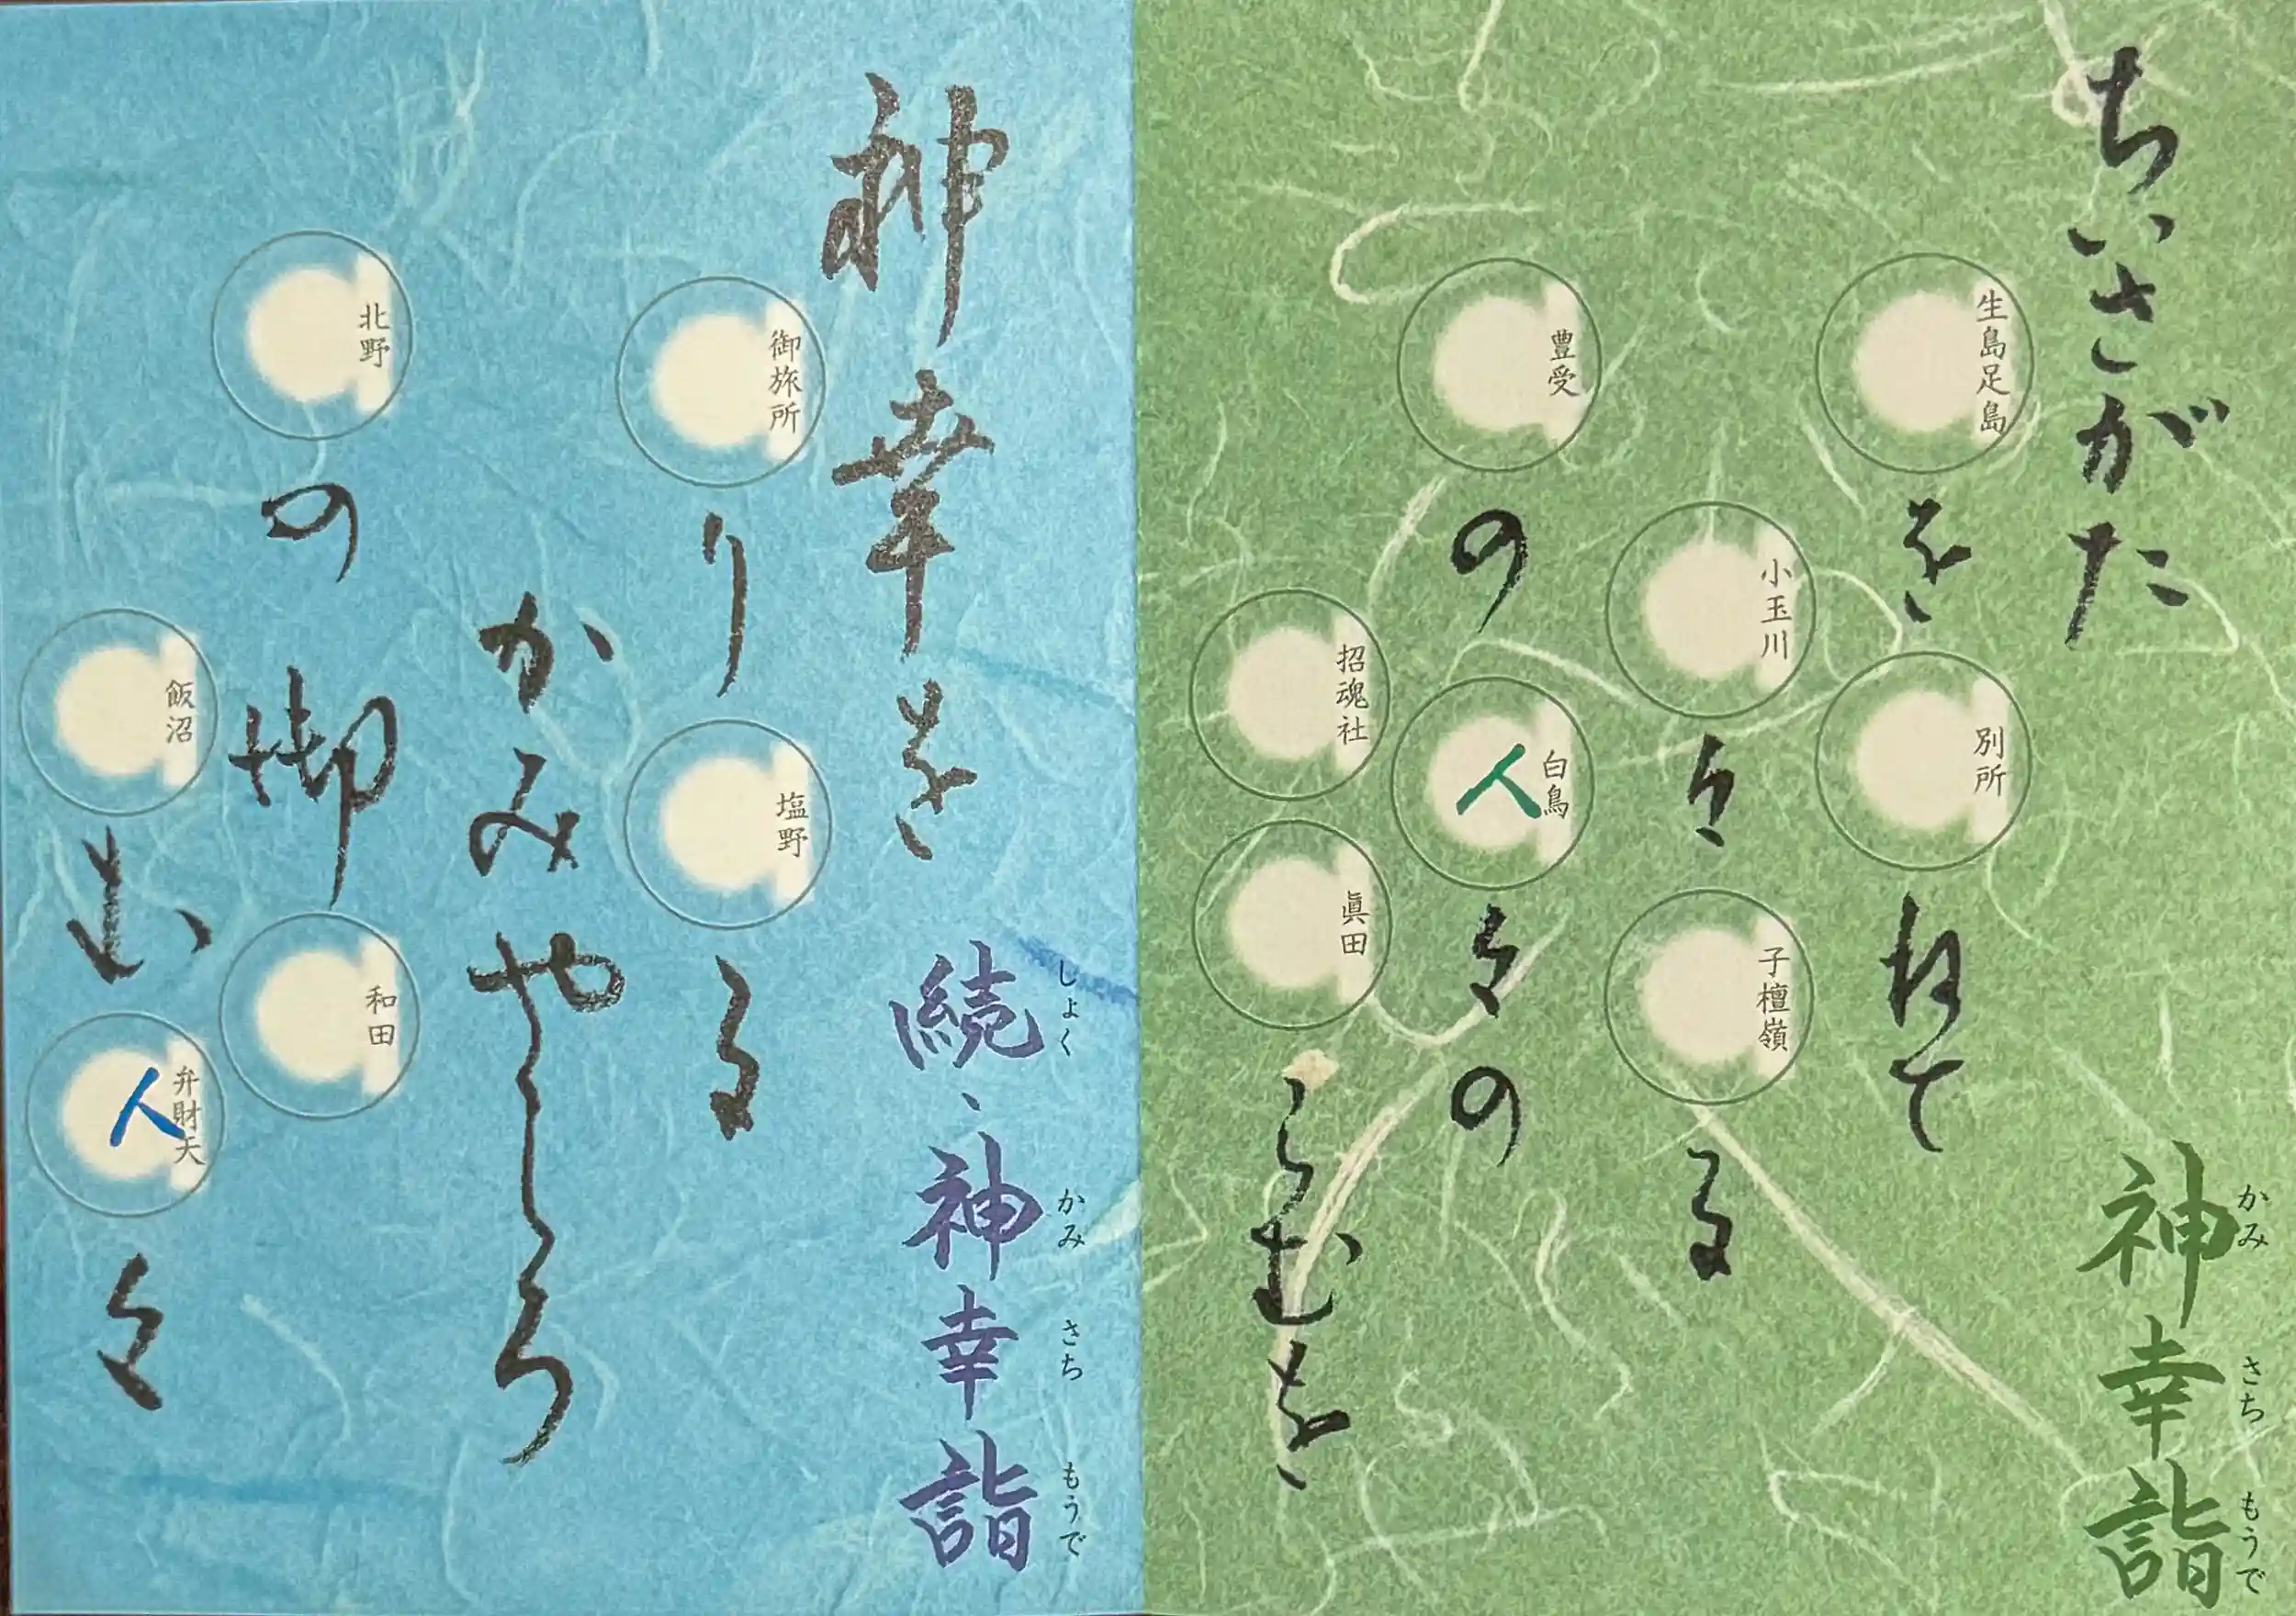 ちいさがた
神幸詣
かみ さち もうで
生島足島
を
別所
ねて
小玉川
々
子檀嶺
る
豊受
の
白鳥
人
々の
招魂社
眞田
らむを
神幸を
続、神幸詣
しょく かみ さち もうで
御旅所
り
塩野
る
かみやしろ
北野
の御
和田
飯沼
む
弁財天
人
々